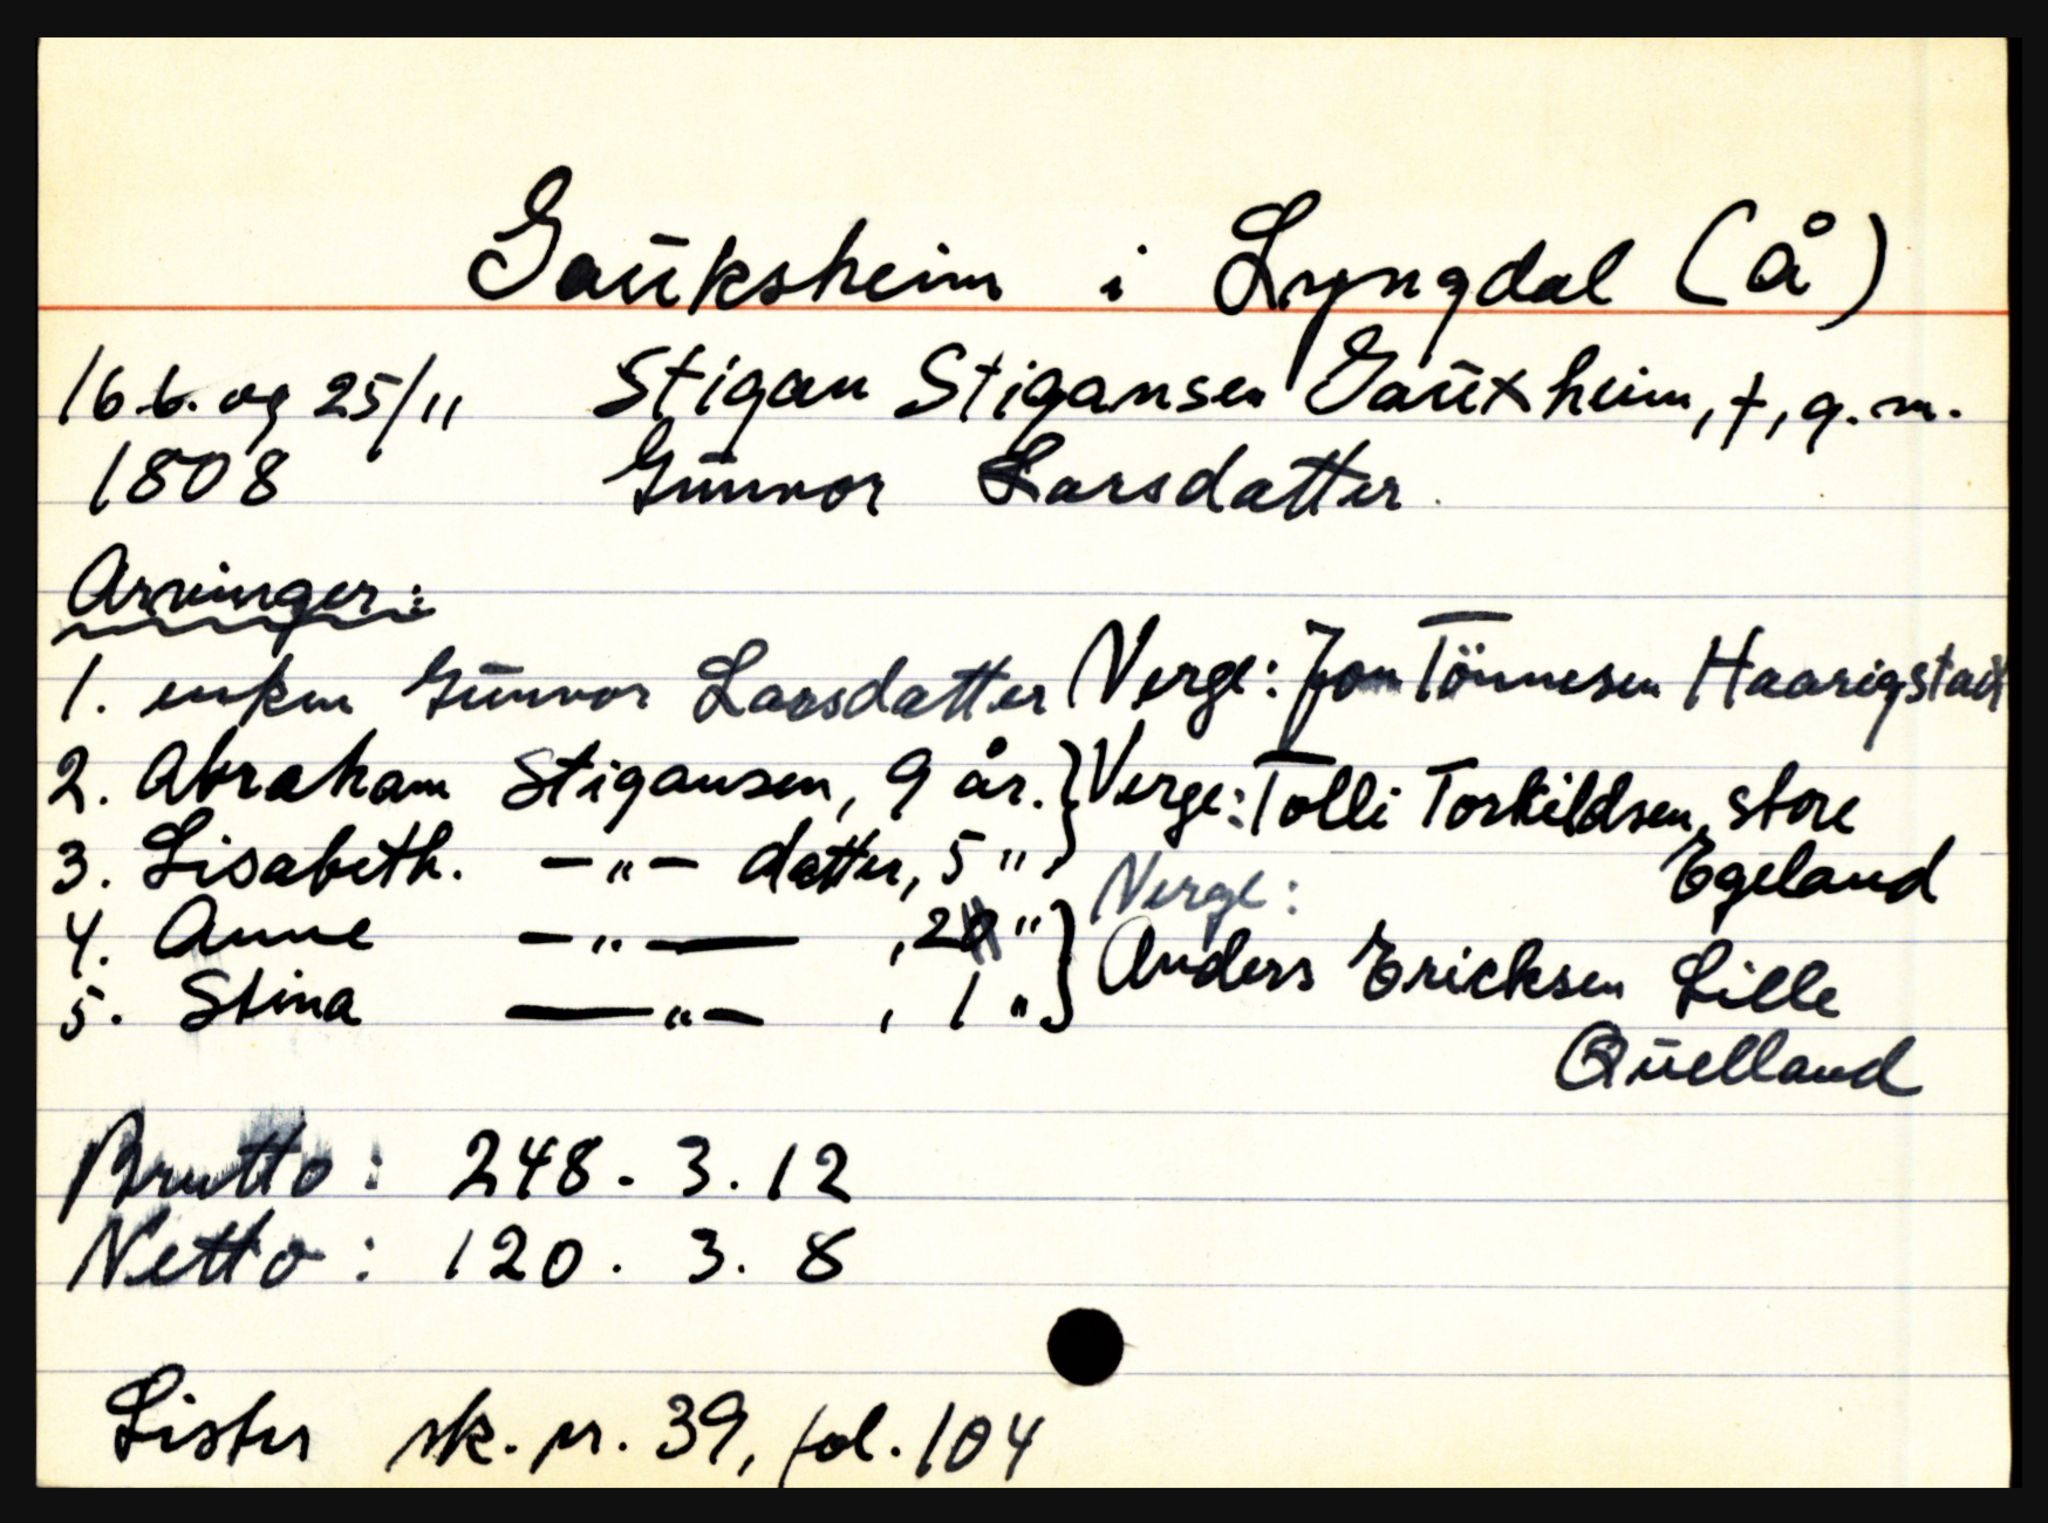 Gauksheim i Lyngdal (Å)
16.6. og 25/11 Stigan Stigansen Gauxheim, †, g. m.
1808 Gunvor Larsdatter.
Arvinger:
1. enken Gunvor Larsdatter Verge: Jon Tönnesen Haarigstad
2. Abraham Stigansen, 9 år. } Verge: Tolli Torkildsen, store
3. Lisabeth. —"— datter, 5 " } Egeland
4. Anne —"— , 2 " } Verge:
5. Stina —"— , 1 " } Anders Ericksen Lille
Quelland
Brutto: 248. 3. 12
Netto: 120. 3. 8
Lister sk. pr. 39, fol. 104